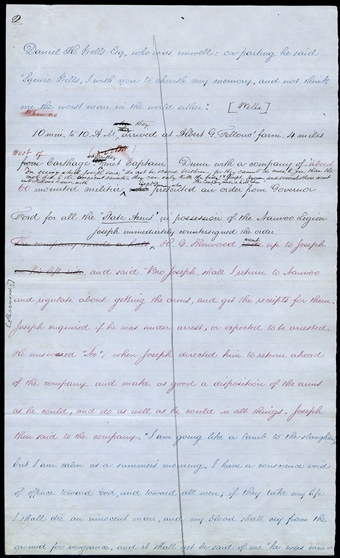 2
Daniel H. Wells Esq, who was unwell: on parting he said
"Squire Wells, I wish you to cherish my memory, and not think
me the worst man in the world either." [Wells]
they
10 min. to 10 A.M. arrived at Albert G. Fellows' farm, 4 miles
west of
Carthage Captain Dunn with a company of about
60 mounted militia, presented an order from Governor
Ford for all the "State Arms" in possession of the Nauvoo Legion
Joseph immediately countersigned the order
H. G. Sherwood went up to Joseph
and said "Bro Joseph, shall I return to Nauvoo
and regulate about getting the arms, and get the receipts for them.
Joseph enquired if he was under arrest, or expected to be arrested.
He answered "No", when Joseph directed him to return ahead
of the company, and make as good a disposition of the arms
as he could, and do as well as he could in all things. Joseph
then said to the company, "I am going like a lamb to the slaughter,
but I am calm as a summer's morning. I have a conscience void
of offence toward God, and toward all men, if they take my life
I shall die an innocent man, and my blood shall cry from the
ground for vengeance, and it shall yet be said of me "he was